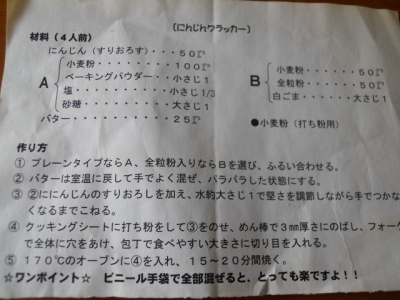 (にんじんクラッカー)
材料(4人前)
にんじん(すりおろす)・・・50㌘
A
小麦粉・・・・・・・・100㌘
ベーキングパウダー・・小さじ1
塩・・・・・・・・・・小さじ1/3
砂糖・・・・・・・・・大さじ1
バター・・・・・・・・・25㌘
B
小麦粉・・・・・・50㌘
全粒粉・・・・・・50㌘
白ごま・・・・大さじ1
●小麦粉(打ち粉用)
作り方
① プレーンタイプならA、全粒粉入りならBを選び、ふるい合わせる。
② バターは室温に戻して手でよく混ぜ、バラバラした状態にする。
③ ②ににんじんのすりおろしを加え、水約大さじ1で堅さを調節しながら手でつかな
くなるまでこねる。
④ クッキングシートに打ち粉をして③をのせ、めん棒で3mm厚さにのばし、フォーク
で全体に穴をあけ、包丁で食べやすい大きさに切り目を入れる。
⑤ 170℃のオーブンに④を入れ、15~20分間焼く。
☆ワンポイント☆ ビニール手袋で全部混ぜると、とっても楽ですよ!!